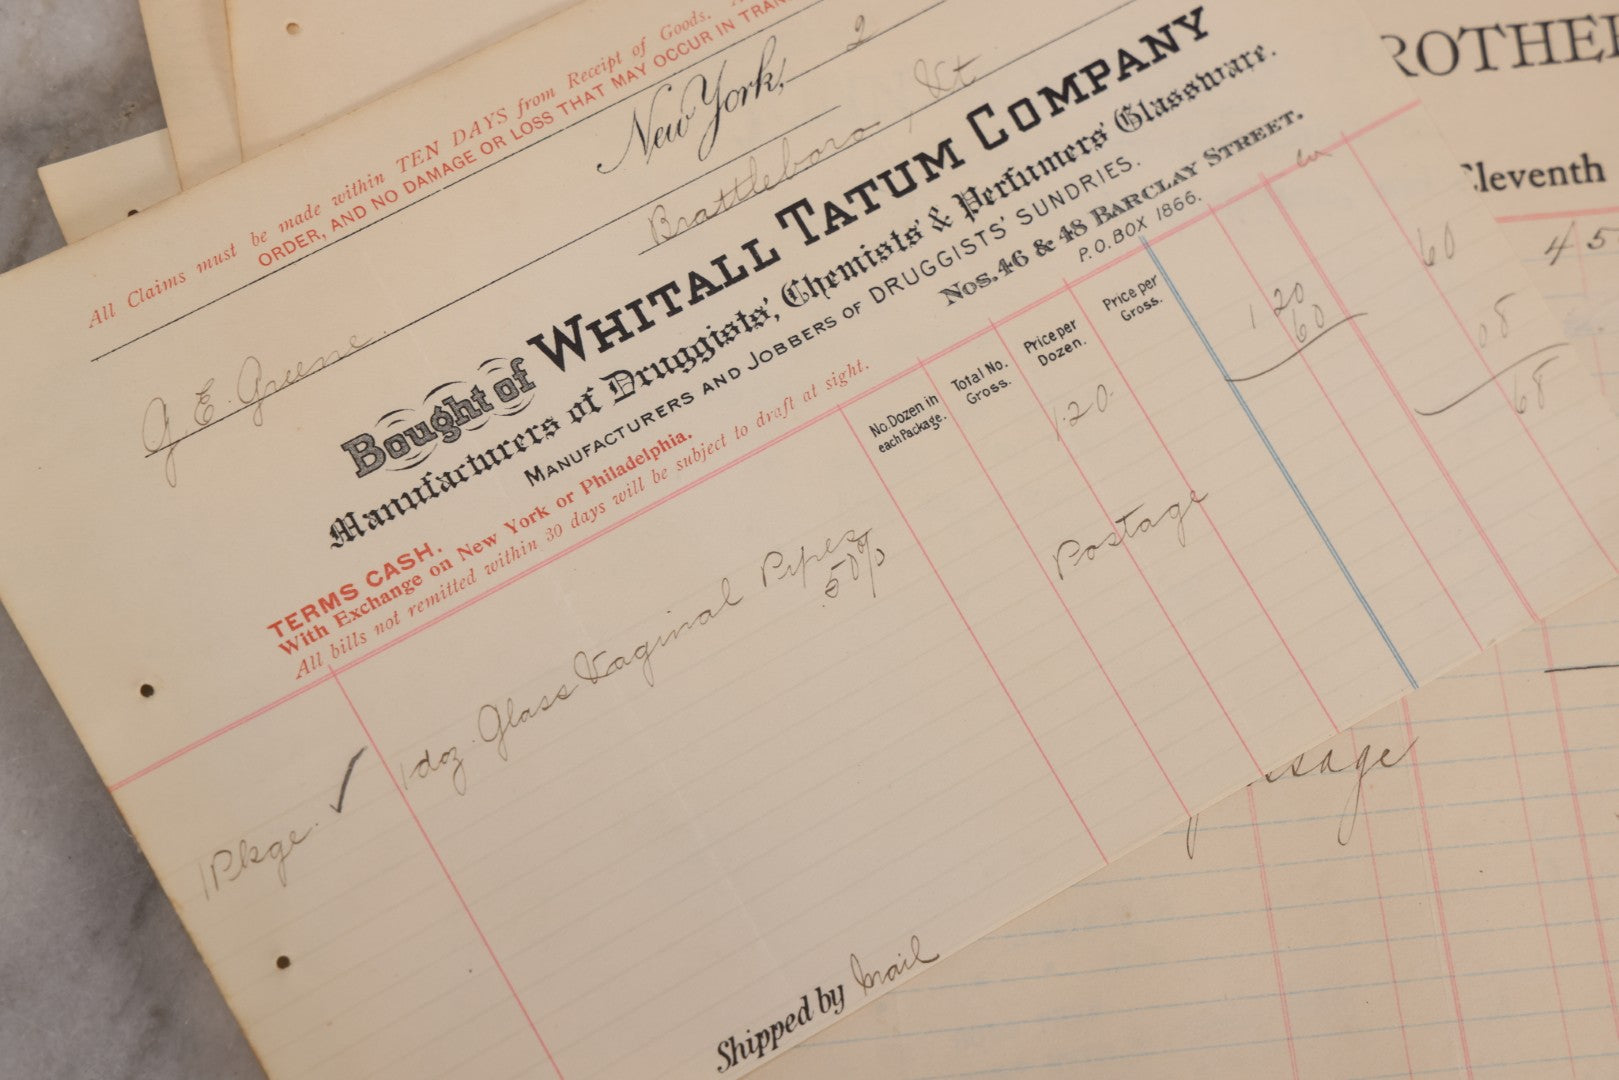 All Claims must be made within TEN DAYS from Receipt of Goods.
ORDER, AND NO DAMAGE OR LOSS THAT MAY OCCUR IN
New York, 2
G. E. Greene. Brattleboro, Vt
Bought of WHITALL TATUM COMPANY
Manufacturers of Druggists', Chemists' & Perfumers' Glassware.
MANUFACTURERS AND JOBBERS OF DRUGGISTS' SUNDRIES.
Nos. 46 & 48 BARCLAY STREET.
P.O. BOX 1866.
TERMS CASH.
With Exchange on New York or Philadelphia.
All bills not remitted within 30 days will be subject to draft at sight.
No. Dozen in each Package.
Total No. Gross.
Price per Dozen.
Price per Gross.
1 Pkge. ✓ 1 doz. Glass Vaginal Pipes 1.20. 1 20
50% 60 60
Postage 08
68
Shipped by Mail
ROTHE
Eleventh
45